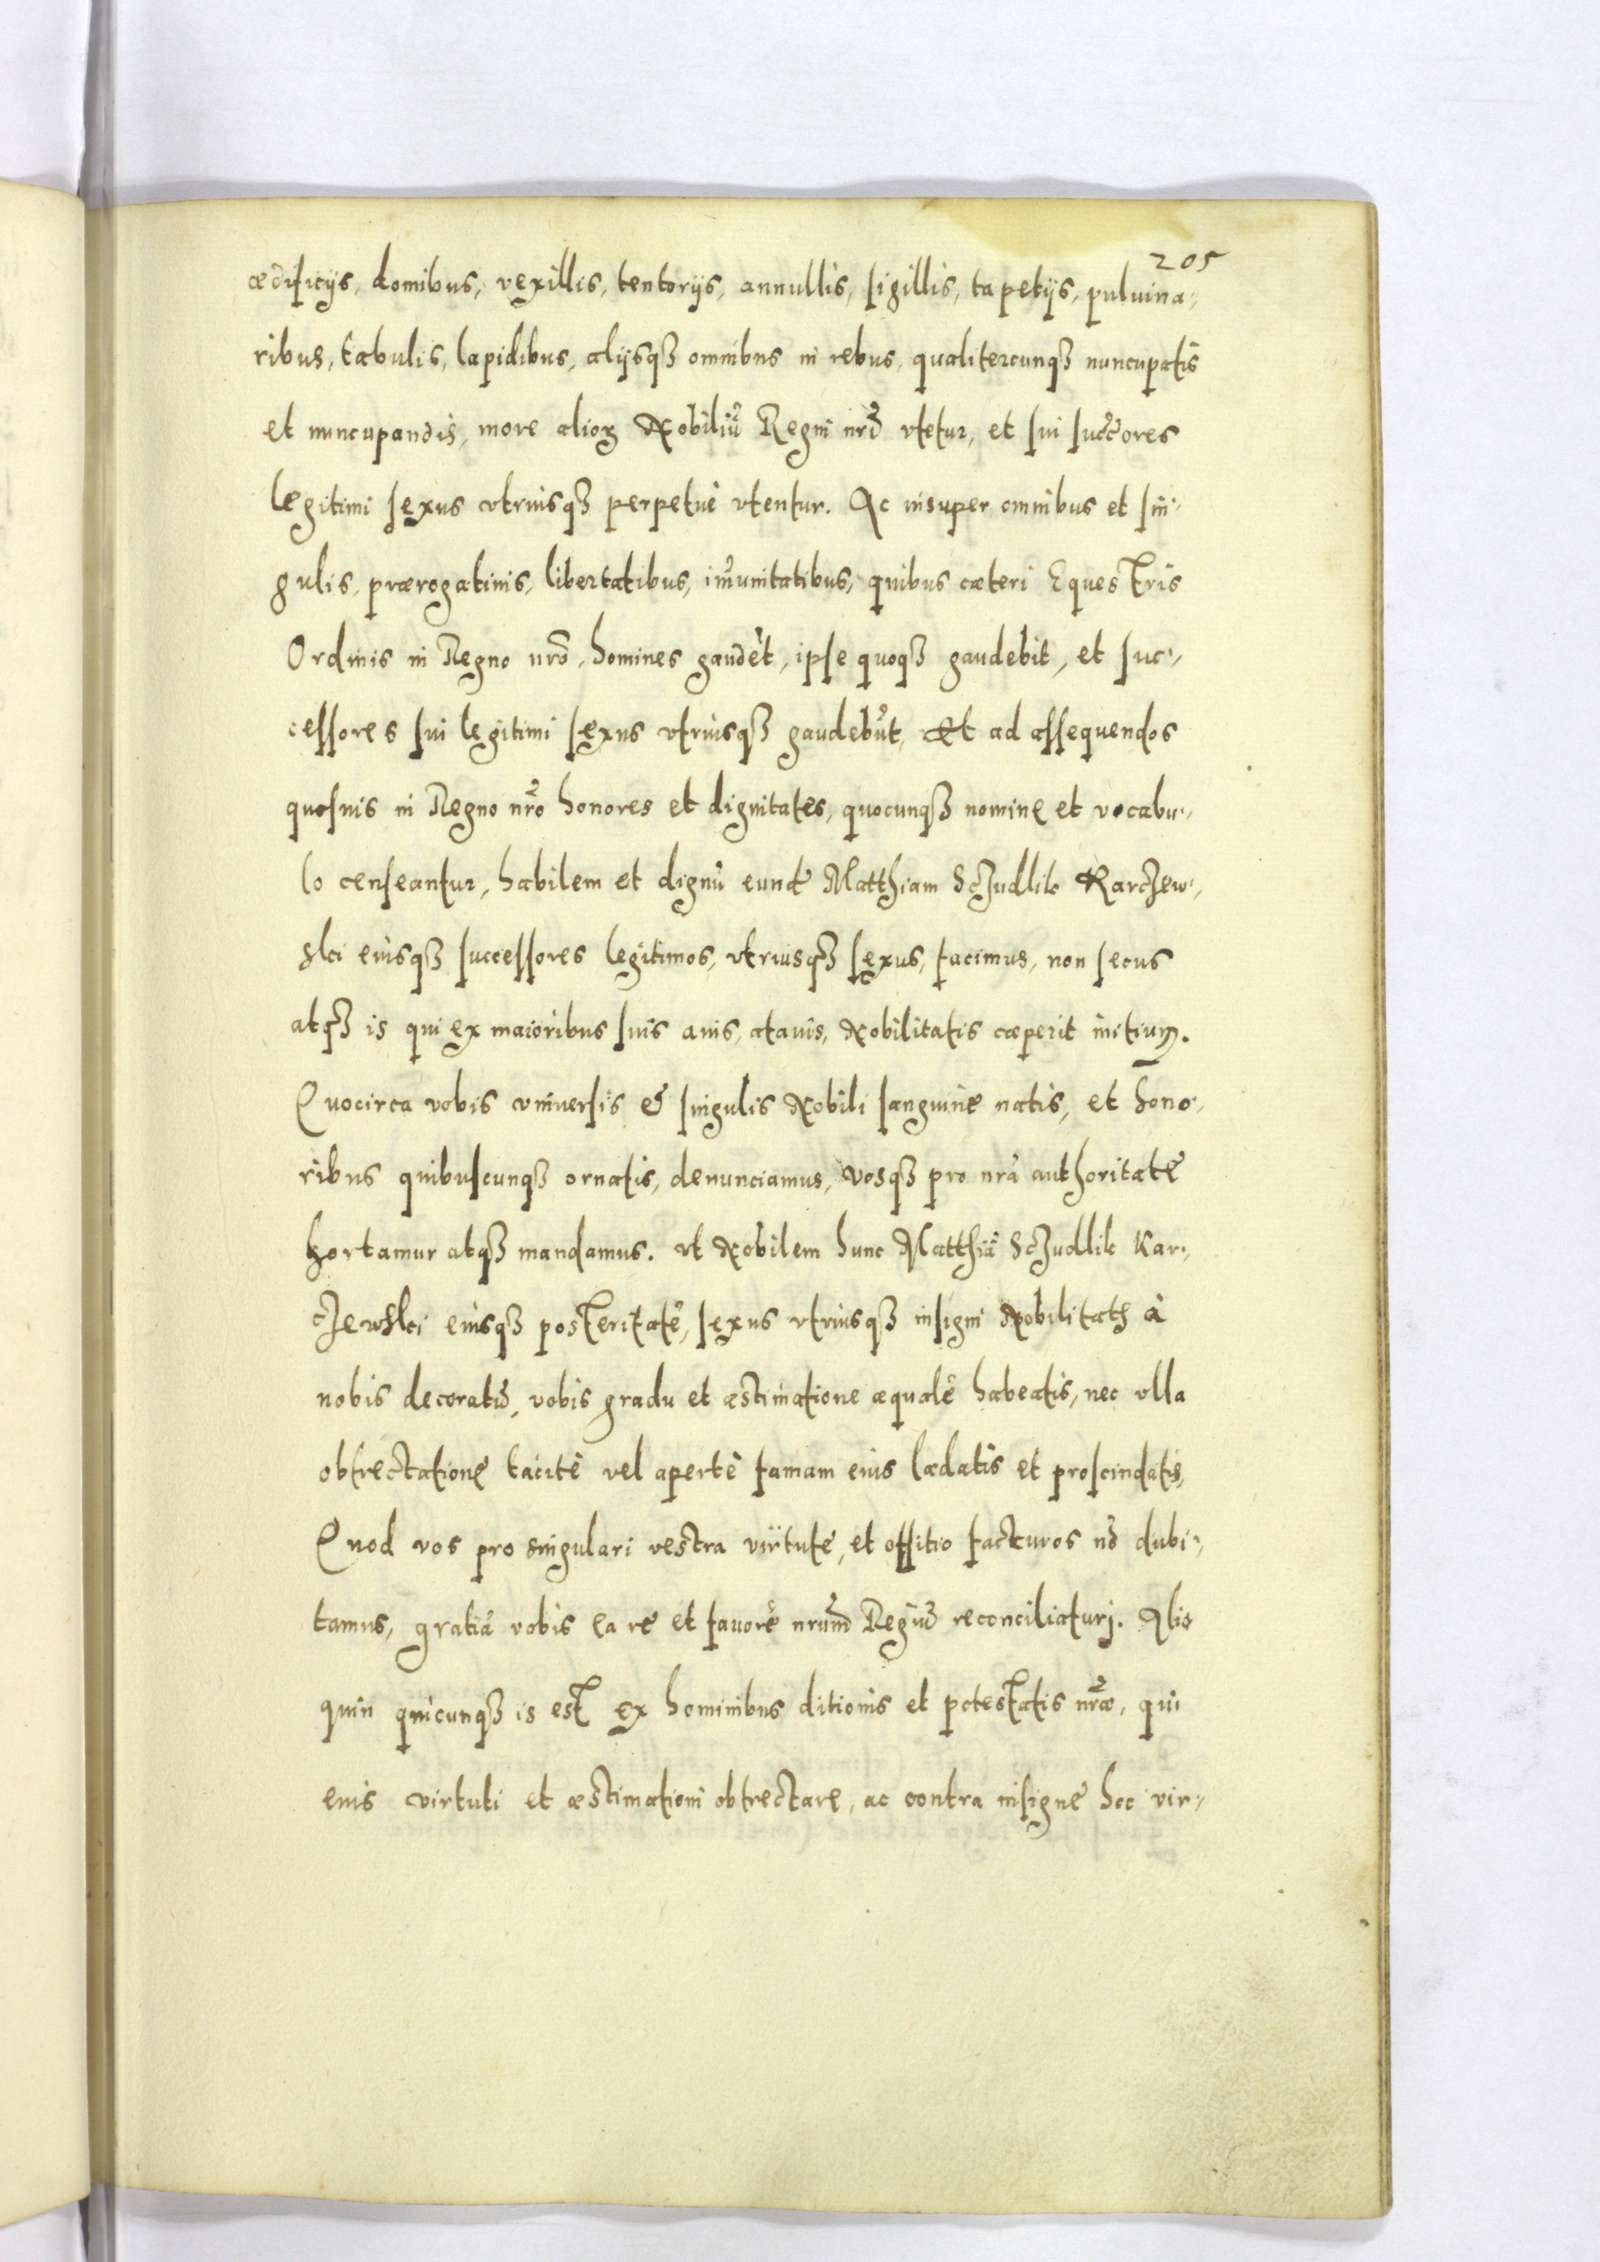 205
ædificijs, domibus, vexillis, tentorijs, annullis, sigillis, tapetijs, puluina-,
ribus, tabulis, lapidibus, alijsqꝫ omnibus in rebus, qualitercunqꝫ nuncupatis
et nuncupandis, more alioꝝ Nobiliũ Regni nrĩ vtetur, et sui succ̃ores
legitimi sexus vtriusqꝫ perpetuè vtentur. Ac insuper omnibus et sin-
gulis, prærogatiuis, libertatibus, im̃unitatibus, quibus cæteri Equestris
Ordinis in Regno nrõ, homines gaudẽt, ipse quoqꝫ gaudebit, et suc-,
cessores sui legitimi sexus vtriusqꝫ gaudebũt, Et ad assequendos
quosuis in Regno nrõ honores et dignitates, quocunqꝫ nomine et vocabu-,
lo censeantur, habilem et dignũ eundẽ Matthiam Sczudlik Karczew-,
ski eiusqꝫ successores legitimos, vtriusqꝫ sexus, facimus, non secus
atqꝫ is qui ex maioribus suis auis, atauis, Nobilitatis cæperit initium.
Quocirca vobis vniuersis & singulis Nobili sanguine natis, et hono-,
ribus quibuscunqꝫ ornatis, denunciamus, vosqꝫ pro nrã authoritate
hortamur atqꝫ mandamus. vt Nobilem hunc Matthiã Sczudlik Kar-,
czewski eiusqꝫ posteritatẽ, sexus vtriusqꝫ insigni Nobilitatis à
nobis decoratũ, vobis gradu et æstimatione æqualẽ habeatis, nec vlla
obtrectatione tacitè vel apertè famam eius lædatis et proscindatis,
Quod vos pro singulari vestra virtute, et offitio facturos nõ dubi-,
tamus, gratiã vobis ea re et fauorẽ nrũm Regiũ reconciliaturi. Alio
quin quicunqꝫ is est ex hominibus ditionis et potestatis nrãe, qui
eius virtuti et æstimationi obtrectare, ac contra insigne hoc vir-,